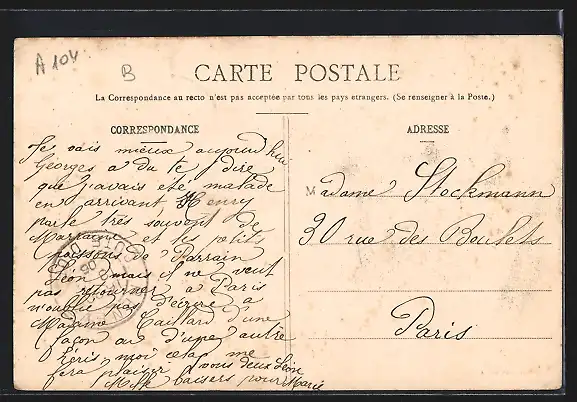 A 104
B
CARTE POSTALE
La Correspondance au recto n'est pas acceptée par tous les pays étrangers. (Se renseigner à la Poste.)
CORRESPONDANCE
Je vais mieux aujourd'hui
Georges a du te dire
que j'avais été malade
en arrivant Henry
parle très souvent de
Marraine et les petits
poissons de Parrain
Léon mais il ne veut
pas retourner à Paris
n'oublie pas d'écrire à
Madame Caillard d'une
façon ou d'une autre
Ecris moi cela me
fera plaisir à vous deux Léon
Mille baisers pour Marie
ADRESSE
Madame Stockmann
30 rue des Boulets
Paris